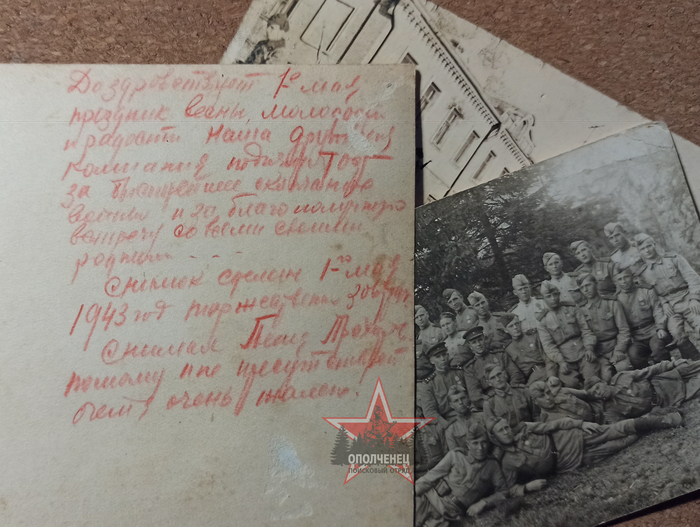 Да здравствует 1е мая
праздник весны, молодости
и радости Наша дружная
компания подымает тост
за быстрейшее окончание
войны и за благополучную
встречу со всеми своими
родными....
Снимок сделан 1го мая
1943 год торжественный
Снимал Леня
поэтому и не присутствует
очень жалею.
ОПОЛЧЕНЕЦ
ПОИСКОВЫЙ ОТРЯД